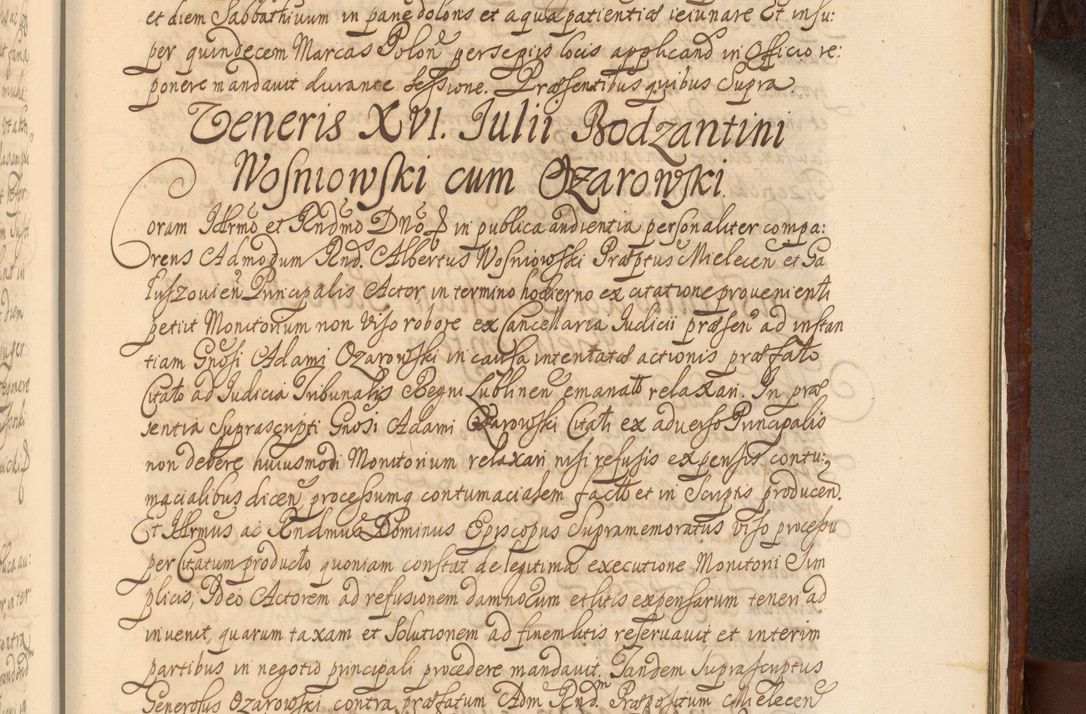 et diem Sabbathivum in pane doloris et aqua patientiæ ieiunare Et insu:
per quindecem Marcas Polon persepius locis applicand in Officio re:
ponere mandavit durante Sessione. Præsentibus quibus Supra.
Veneris XVI. Iulii Bodzantini
Wosniowski cum Ozarowski.
Coram Illrmo et Rndmo Dno in publica audientia personaliter compa:
rens Admodum Rnd. Albertus Wosniowski Præptus Mielecen et Ga
luszovien Principalis Actor in termino hodierno ex citatione provenienti
petiit Monitorium non viso robore ex Cancellaria Iudicii præsen ad instan
tiam Gnosi Adami Ozarowski in causa intentatæ actionis præfato
Citato ad Iudicia Tribunalis Regni Lublinen emanato relaxari. In præ
sentia Suprascripti Gnosi Adami Ozarowski Citati ex adverso Principalis
non debere huiusmodi Monitorium relaxari nisi refusis expensis contu:
macialibus dicen processumq contumacialem facto et in Scriptis producen.
Et Illrmus ac Rndmus Dominus Episcopus Supramemoratus viso processu
per Citatum producto, quoniam constat de legitima executione Monitorii Sim
plicis, Ideo Actorem ad refusionem damnorum et litis expensarum teneri ad
invenit, quarum taxam et Solutionem ad finem litis reservavit et interim
partibus in negotio principali procedere mandavit. Tandem Suprascriptus
Generosus Ozarowski contra præfatum Adm Rndm Præpositum Mielecen